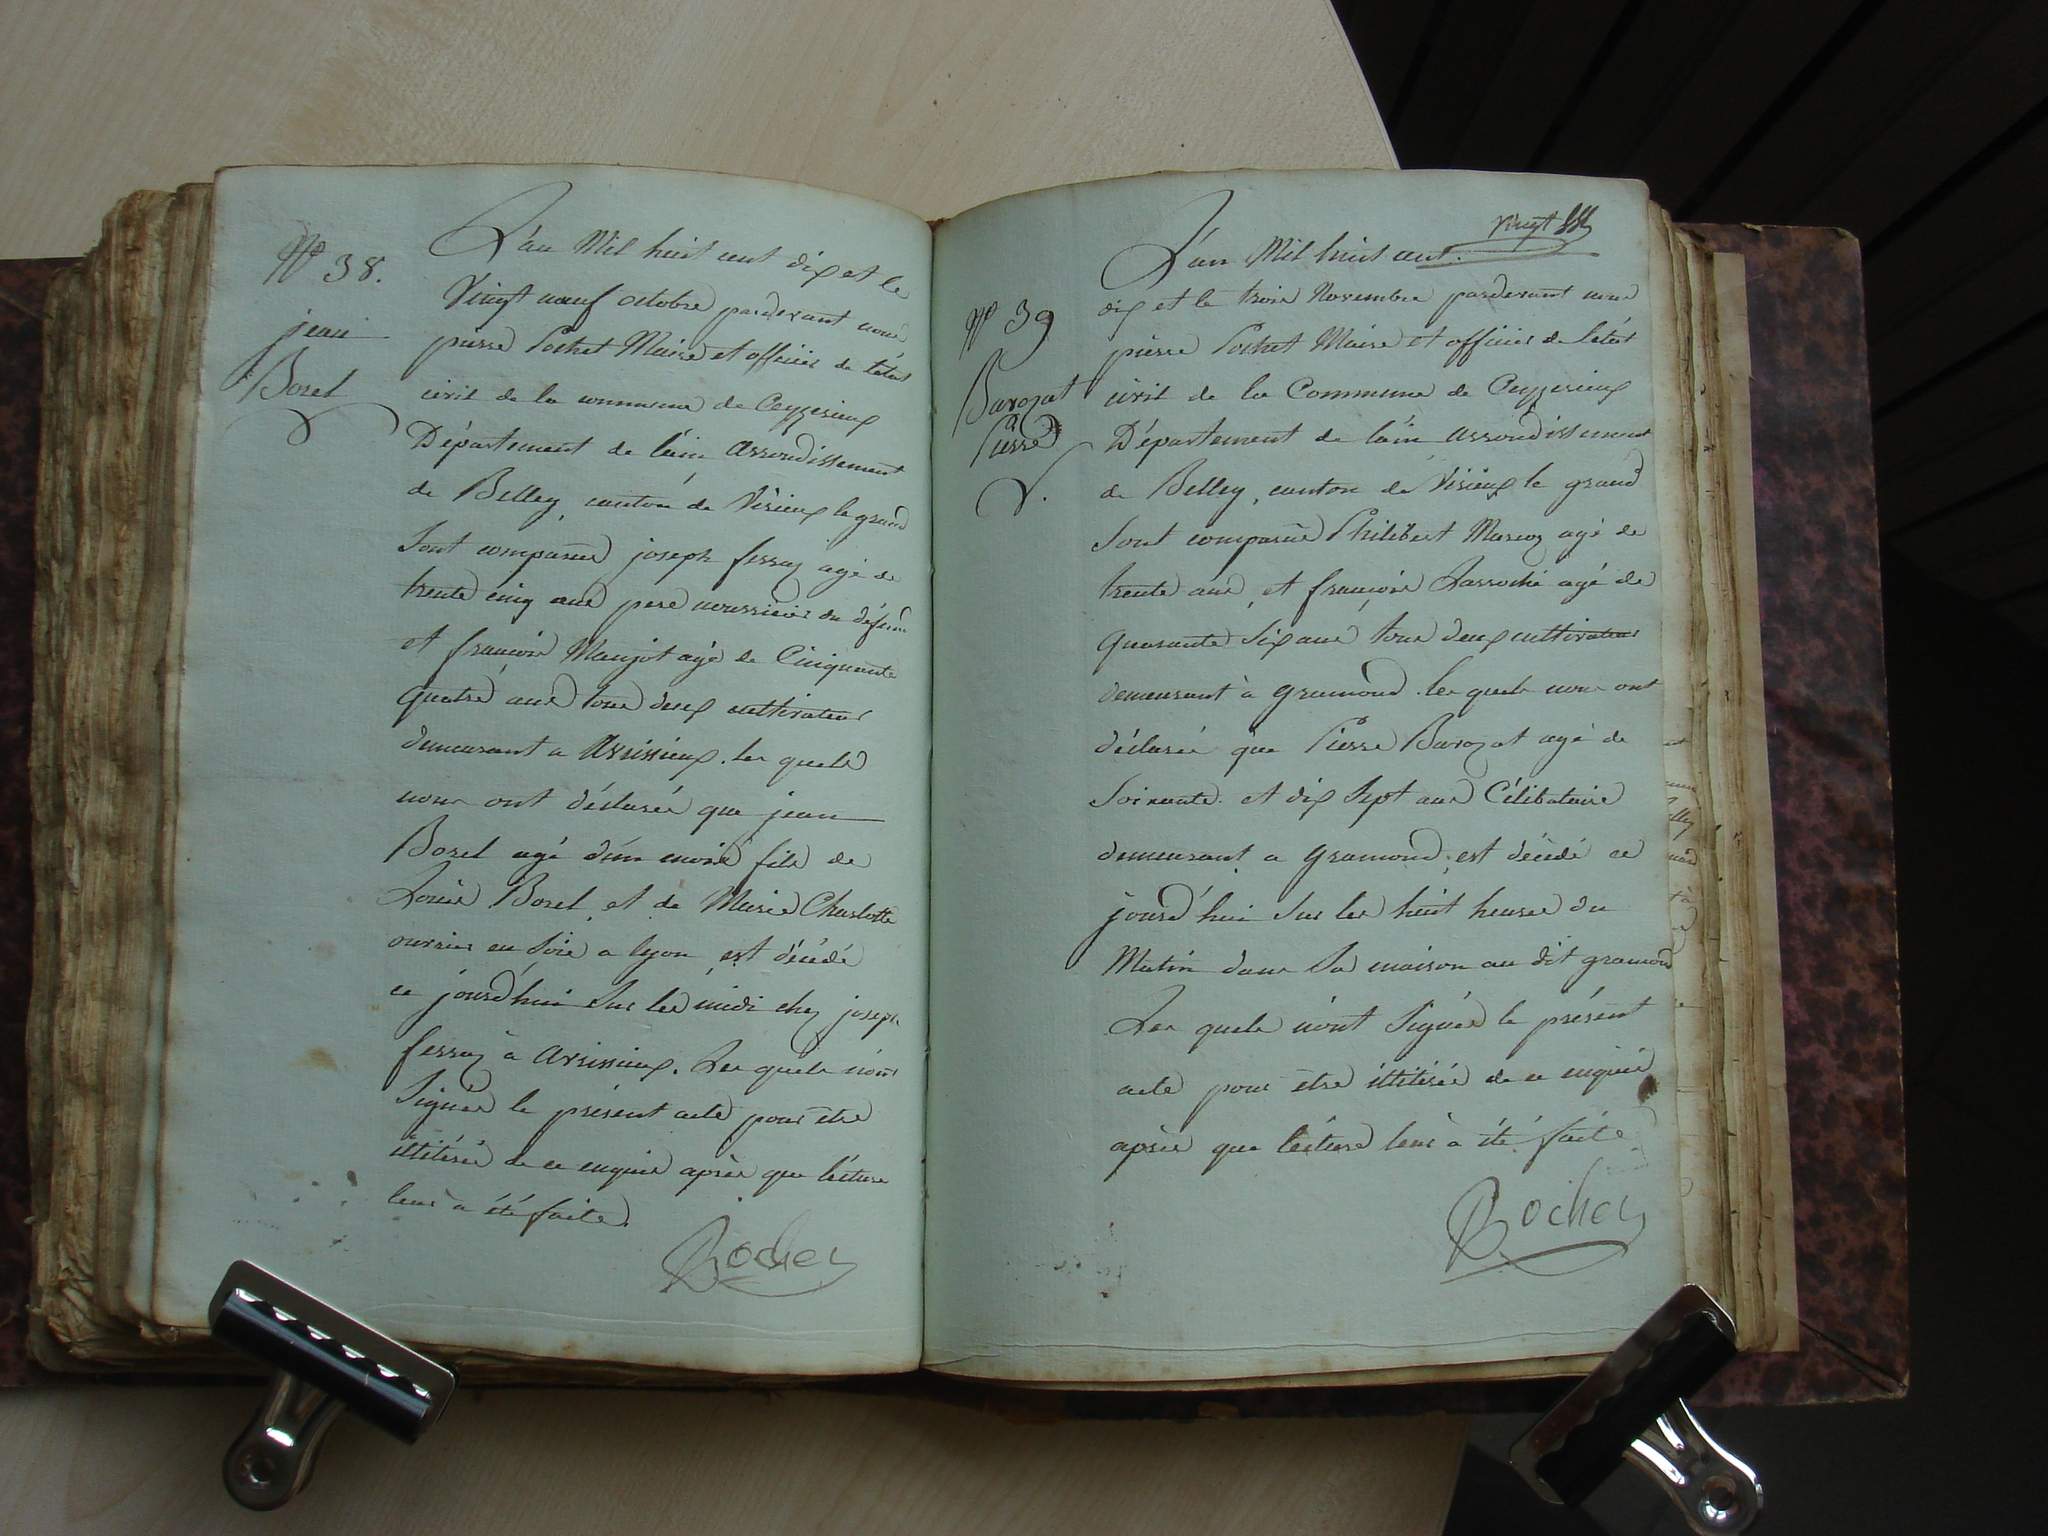 N° 38.
jean
Borel
L'an Mil huit cent dix et le
Vingt neuf octobre pardevant nous
pierre Pochet Maire et officier de l'état
civil de la commune de Ceyzerieux
Département de l'ain arrondissement
de Belley, canton de Virieux le grand
Sont comparus joseph ferraz agé de
trente cinq ans pere nourricier du défunt
et françois Maujot agé de Cinquante
quatre ans tous deux cultivateurs
demeurant a Avrissieux. les quels
nous ont déclarés que jean
Borel agé d'un mois fils de
Louis Borel, et de Marie Charlotte
ouvrier en Soie a lyon, est décédé
ce jourd'hui Sur les midi chez joseph
ferraz à Avrissieux. Les quels n'ont
Signés le présent acte pour être
illitérés de ce enquis après que lécture
leur à été faite.
Rochet
vingt
N° 39
Barozat
Pierre
L'an Mil huit cent
dix et le trois Novembre pardevant nous
pierre Pochet Maire et officier de l'état
civil de la Commune de Ceyzerieux
Département de l'ain arrondissement
de Belley, canton de Virieux le grand
Sont comparus Philibert Marcoz agé de
trente ans, et françois Larroche agé de
quarante Six ans tous deux cultivateurs
demeurant à gramond. les quels nous ont
déclarés que Pierre Barozat agé de
Soixante et dix Sept ans Célibataire
demeurant a gramond, est décédé ce
jourd'hui Sur les huit heures du
Matin dans Sa maison au dit gramond
Les quels n'ont Signés le présent
acte pour être illitérés de ce enquis
après que lécture leur à été faite
Rochet